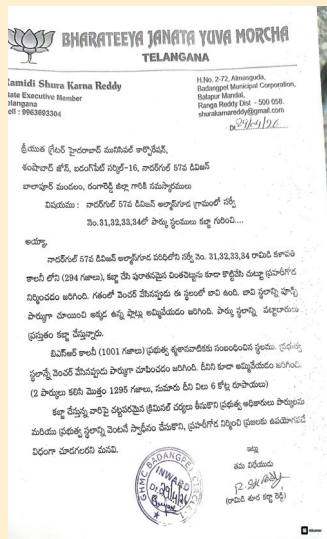 BHARATEEYA JANATA YUVA MORCHA
TELANGANA
Ramidi Shura Karna Reddy
State Executive Member
Telangana
Cell : 9963693304
H.No. 2-72, Almasguda,
Badangpet Municipal Corporation,
Balapur Mandal,
Ranga Reddy Dist - 500 058.
shurakarnareddy@gmail.com
Dt. 29/4/26
శ్రీయుత గ్రేటర్ హైదరాబాద్ మునిసిపల్ కార్పొరేషన్,
శంషాబాద్ జోన్, బడంగ్‌పేట్ సర్కిల్-16, నాదర్‌గుల్ 57వ డివిజన్
బాలాపూర్ మండలం, రంగారెడ్డి జిల్లా గారికి నమస్కారములు
విషయము : నాదర్‌గుల్ 57వ డివిజన్ అల్మాస్‌గూడ గ్రామంలో సర్వే
నెం.31,32,33,34లో పార్కు స్థలములు కబ్జా గురించి....
అయ్యా,
నాదర్‌గుల్ 57వ డివిజన్ అల్మాస్‌గూడ పరిధిలోని సర్వే నెం. 31,32,33,34 రామిడి కళావతి
కాలనీ లోని (294 గజాలు), కబ్జా చేసి పురాతనమైన చింతచెట్టును కూడా కొట్టివేసి చుట్టూ ప్రహరీగోడ
నిర్మించడం జరిగింది. గతంలో వెంచర్ వేసినప్పుడు ఈ స్థలంలో బావి ఉంది. బావి స్థలాన్ని పూడ్చి
పార్కుగా చూయించి అక్కడ ఉన్న ప్లాట్లు అమ్మివేయడం జరిగింది. పార్కు స్థలాన్ని పట్టాదారులు
ప్రస్తుతం కబ్జా చేస్తున్నారు.
బిఎన్ఆర్ కాలనీ (1001 గజాలు) ప్రభుత్వ శ్మశానవాటికకు సంబంధించిన స్థలము. ప్రభుత్వ
స్థలాన్నే వెంచర్ వేసినప్పుడు పార్కుగా చూపించడం జరిగింది. దీనిని కూడా అమ్మివేయడం జరిగింది.
(2 పార్కులు కలిసి మొత్తం 1295 గజాలు, సుమారు దీని విలు 6 కోట్ల రూపాయలు)
కబ్జా చేస్తున్న వారిపై చట్టపరమైన క్రిమినల్ చర్యలు తీసుకొని ప్రభుత్వ అధికారులు పార్కులను
మరియు ప్రభుత్వ స్థలాన్ని వెంటనే స్వాధీనం చేసుకొని, ప్రహరీగోడ నిర్మించి ప్రజలకు ఉపయోగపడే
విధంగా చూడగలరని మనవి.
ఇట్లు
తమ విధేయుడు
(రామిడి శూర కర్ణా రెడ్డి)
GHMC BADANGPET CIRCLE
INWARD
Dt. 29/4/26